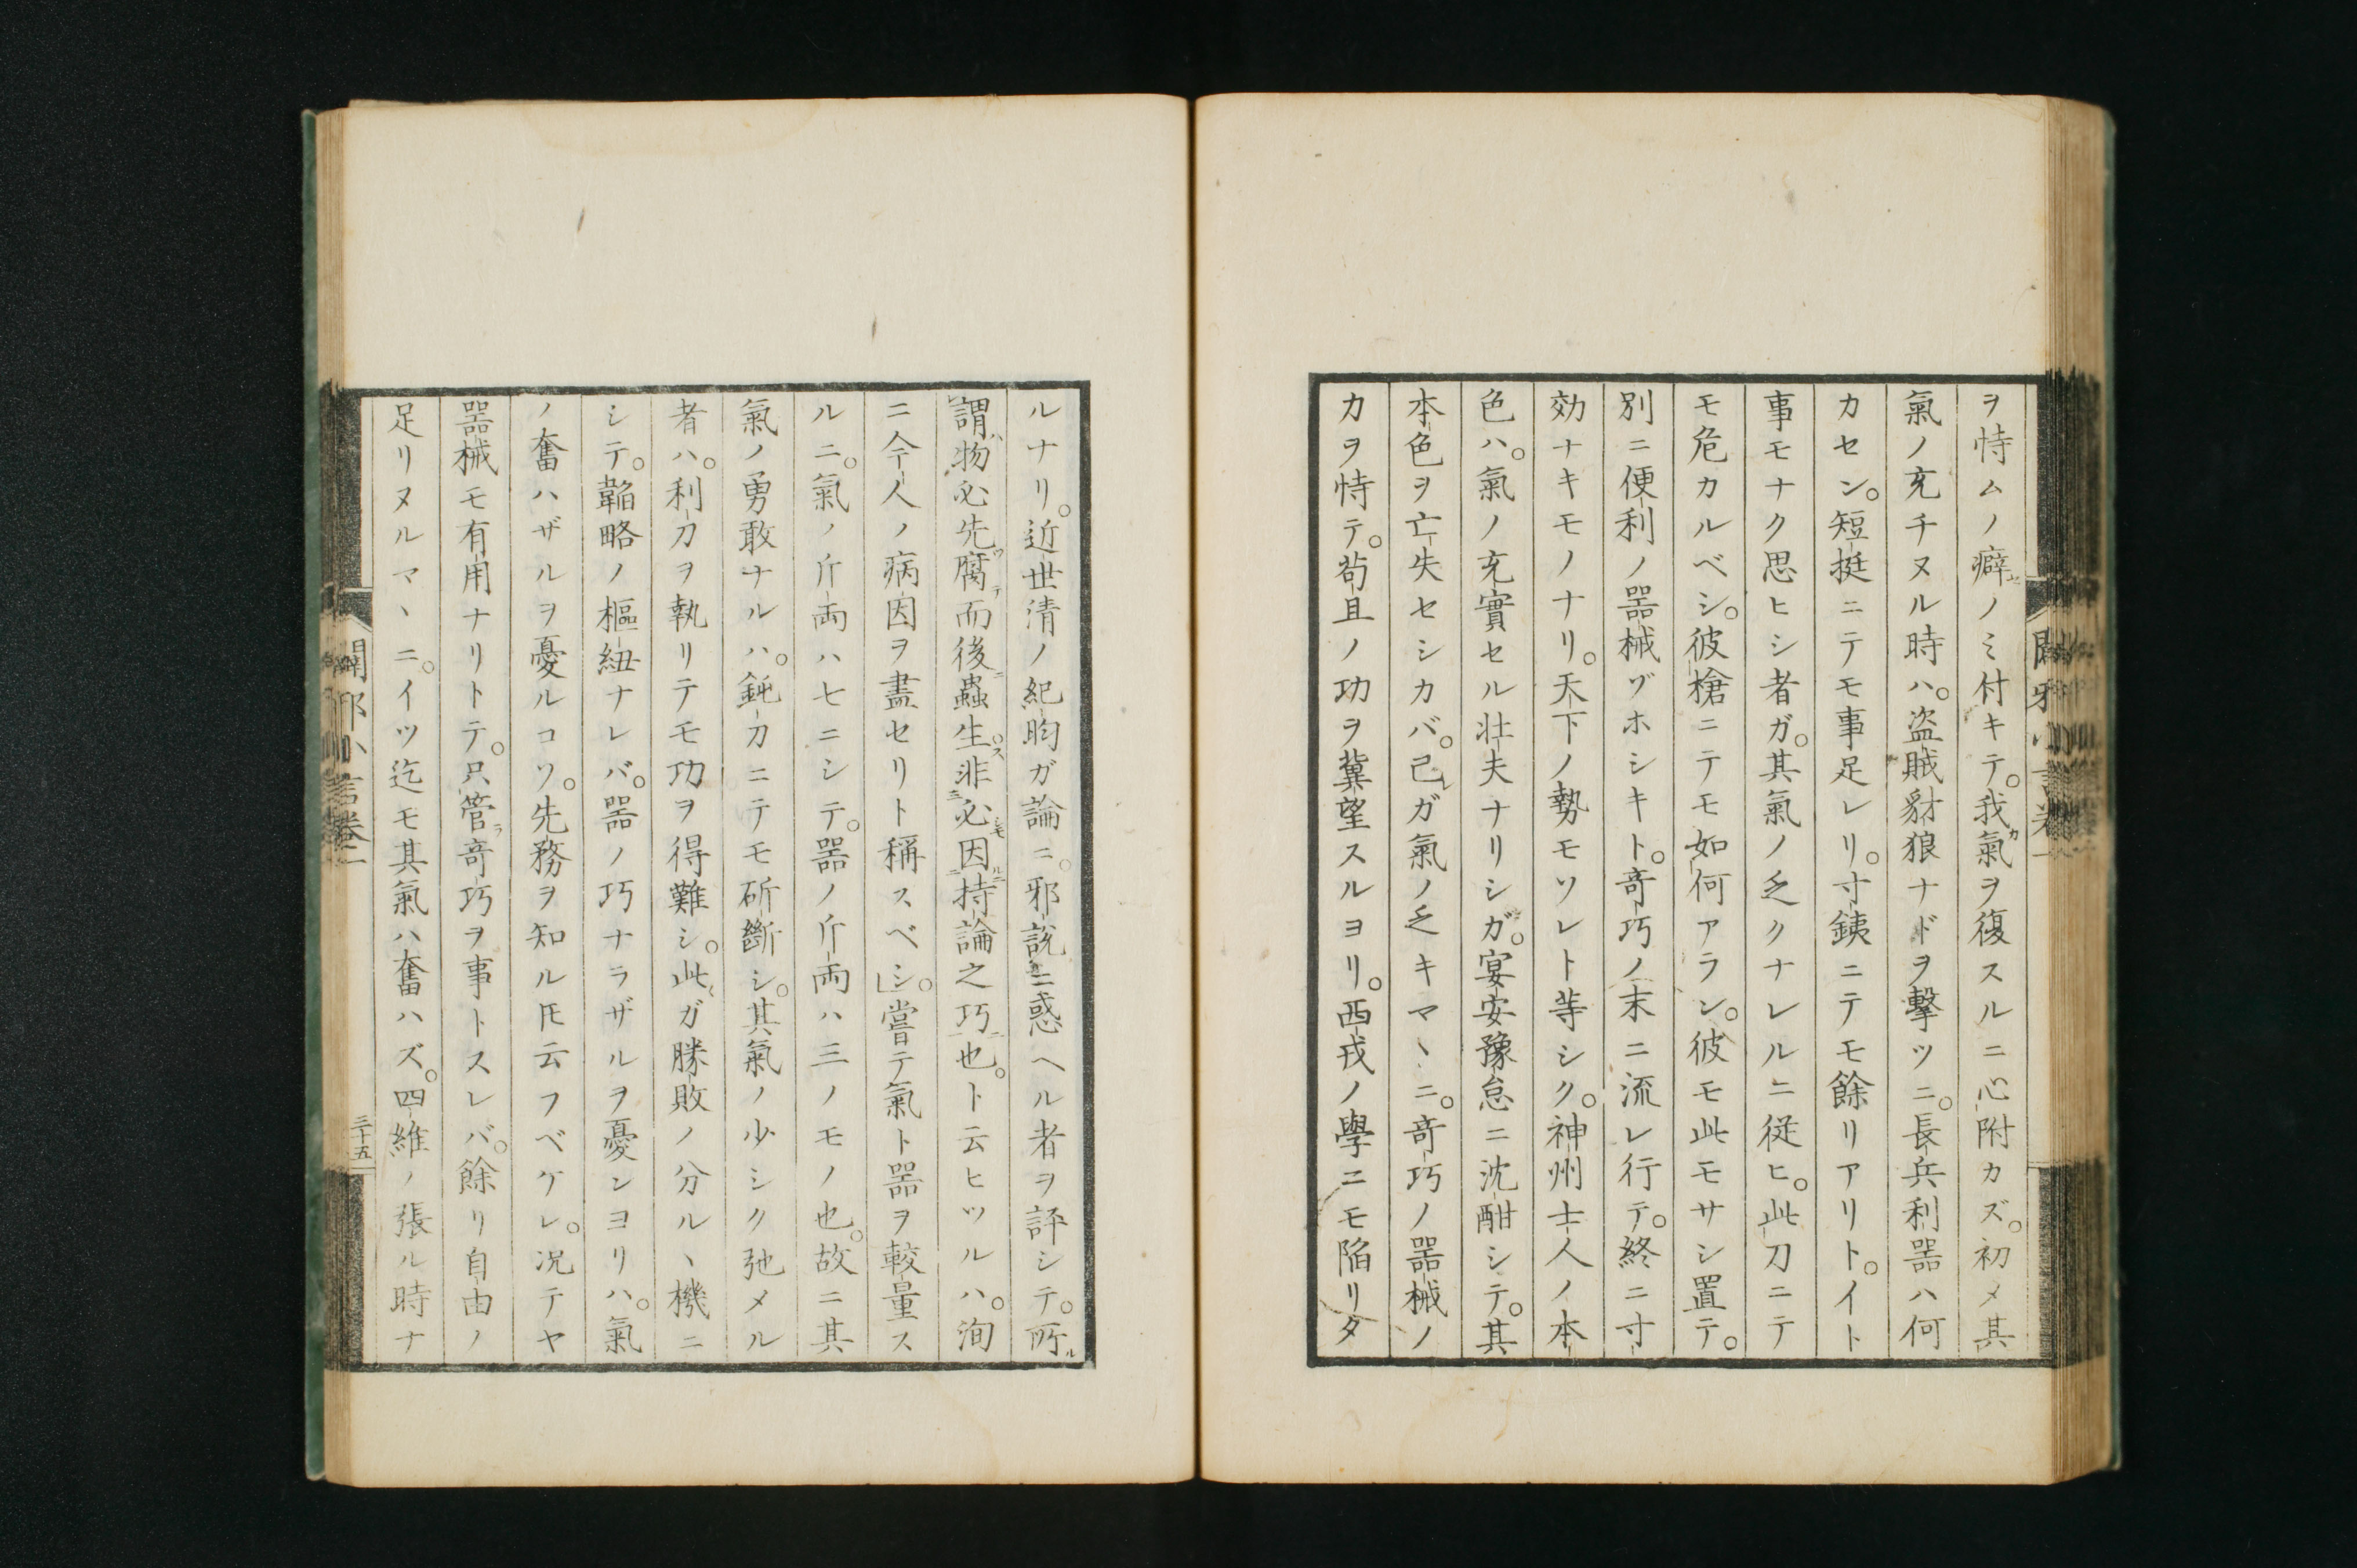 ヲ恃ムノ癖ノミ付キテ。我氣ヲ復スルニ心附カズ。初メ其
氣ノ充チヌル時ハ。盗賊豺狼ナドヲ撃ツニ。長兵利器ハ何
カセン。短挺ニテモ事足レリ。寸鋳ニテモ餘リアリト。イト
事モナク思ヒシ者ガ。其氣ノ乏クナレルニ従ヒ。此刀ニテ
モ危カルベシ。彼槍ニテモ如何アラン。彼モ此モサシ置テ。
別ニ便利ノ噐械ヅホシキト。竒巧ノ末ニ流レ行テ。終ニ寸
効ナキモノナリ。天下ノ勢モソレト等シク。神州士人ノ本
色ハ。氣ノ充實セル壮夫ナリシガ。宴安豫怠ニ沈酣シテ。其
本色ヲ亡失セシカバ。己ガ氣ノ乏キマヽニ。竒巧ノ噐械ノ
力ヲ恃テ。苟且ノ功ヲ冀望スルヨリ。西戎ノ學ニモ陥リタ
ルナリ。近世清ノ紀昀ガ論ニ。邪説ニ惑ヘル者ヲ評シテ。所
謂物必先腐而後蟲生非必因持論之巧也。ト云ヒツルハ。洵
ニ今人ノ病因ヲ盡セリト稱スベシ。」嘗テ氣ト噐ヲ較量ス
ルニ。氣ノ斤両ハ七ニシテ。噐ノ斤両ハ三ノモノ也。故ニ其
氣ノ勇敢ナルハ。鈍刀ニテモ斫斷シ。其氣ノ少シク弛メル
者ハ。利刀ヲ執リテモ功ヲ得難シ。此ガ勝敗ノ分ルヽ機ニ
シテ。韜略ノ樞紐ナレバ。噐ノ巧ナラザルヲ憂ンヨリハ。氣
ノ奮ハザルヲ憂ルコソ。先務ヲ知ル𪜈云フベケレ。况テヤ
噐械モ有用ナリトテ。只管竒巧ヲ事トスレバ。餘リ自由ノ
足リヌルマヽニ。イツ迄モ其氣ハ奮ハズ。四維ノ張ル時ナ
闢邪小言卷一
三十五